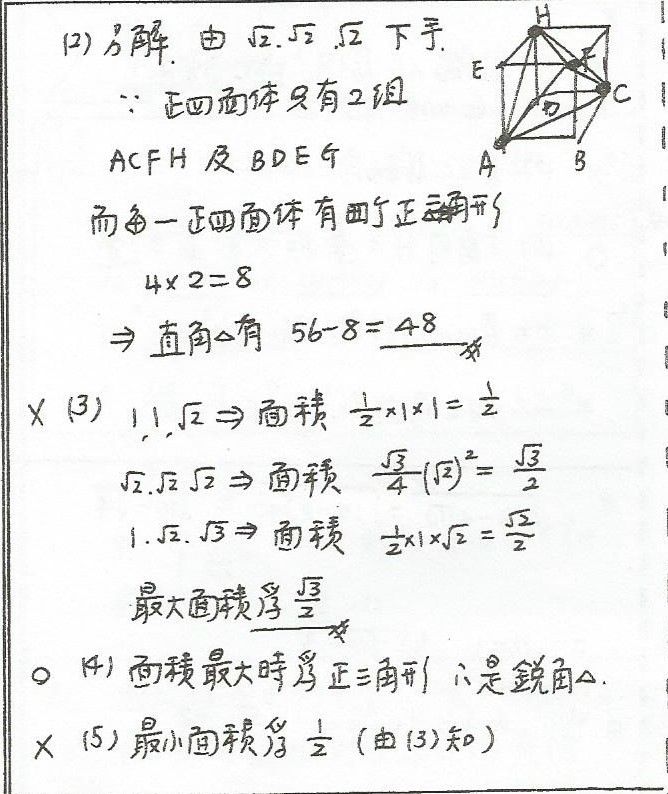 (2) 另解. 由 √2. √2 .√2 下手.
∵ 正四面体只有2組
ACFH 及 BDEG
而每一正四面体有四个正三角形
4×2=8
⇒ 直角△有 56-8=48
× (3) 1,1,√2 ⇒ 面積 1/2×1×1=1/2
√2.√2 √2 ⇒ 面積 √3/4(√2)²=√3/2
1.√2.√3⇒ 面積 1/2×1×√2=√2/2
最大面積為√3/2
○ (4) 面積最大時為正三角形 ∴是銳角△.
× (5) 最小面積為 1/2 (由(3)知)
H
E
F
D
C
A
B